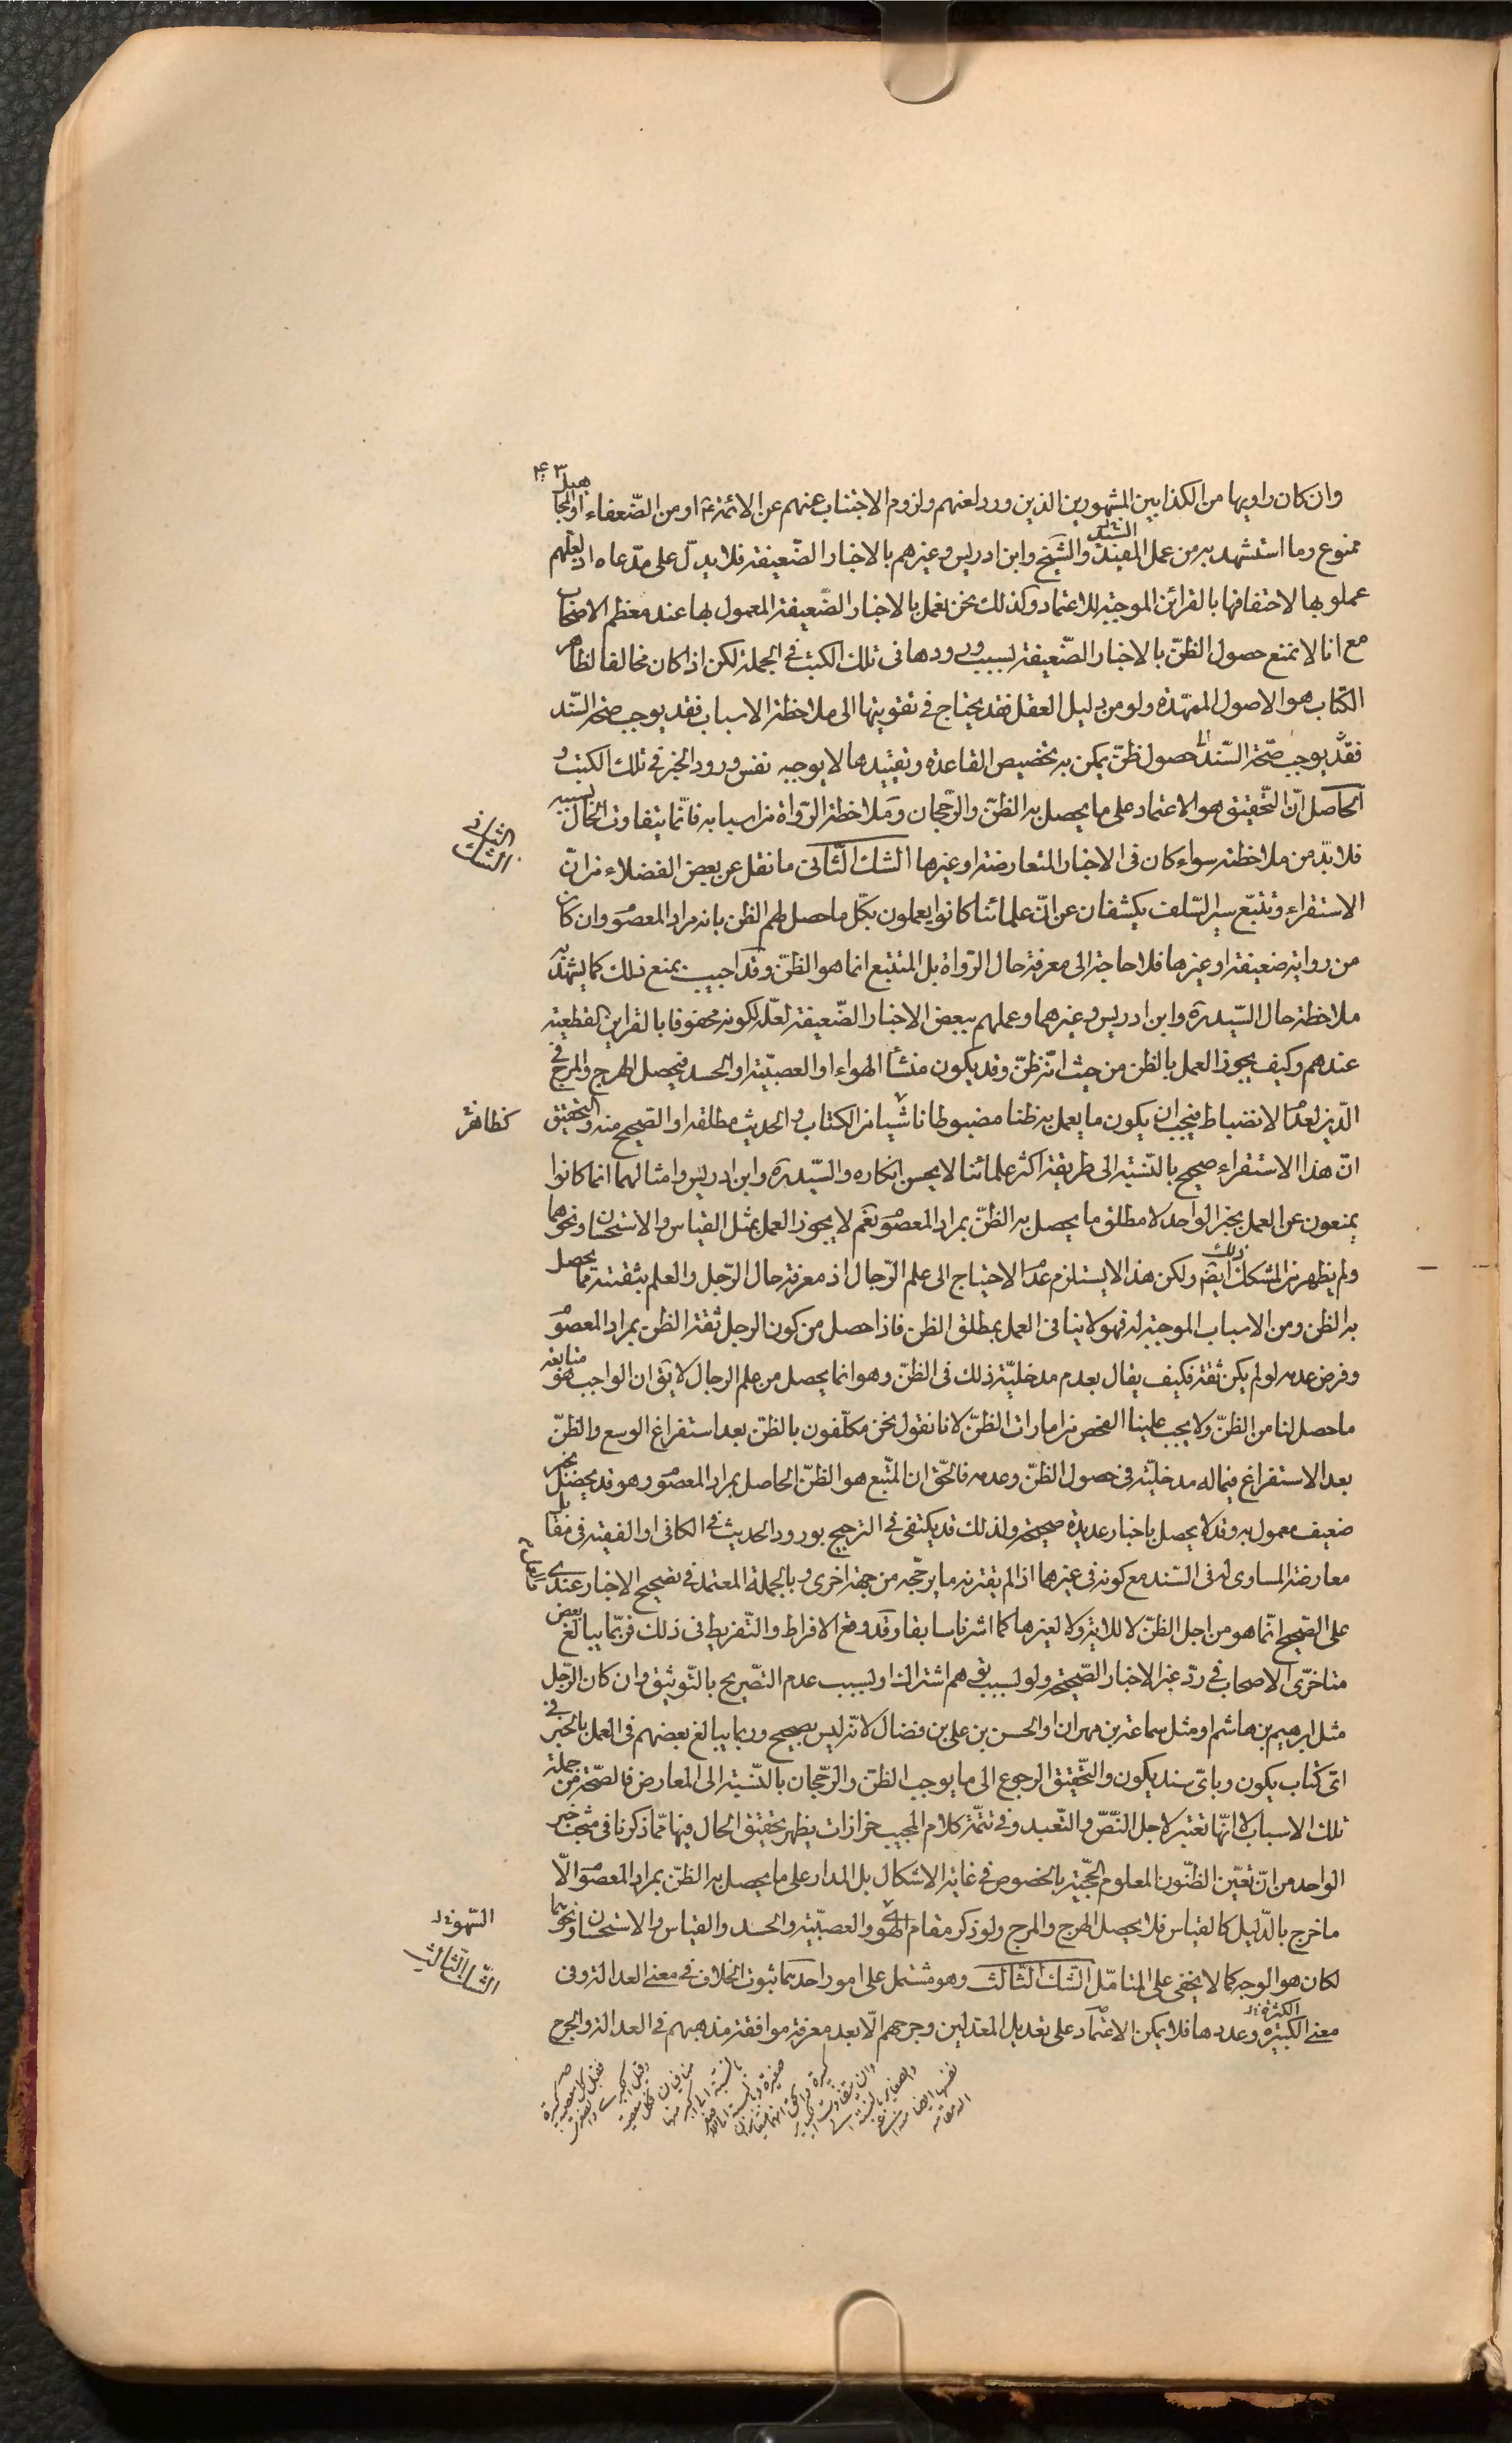 ۴۳
وان كان راويها من الكذابين المشهورين الذين ورد لعنهم ولزوم الاجتناب عنهم عن الائمةع او من الضّعفاء او المجاهيل
ممنوع وما استشهد به من عمل المفيد والشيخ السيّد وابن ادريس وغيرهم بالاخبار الضّعيفة فلا يدلّ على مدّعاه اذ لعلّهم
عملوا بها لاحتفافها بالقرائن الموجبة للاعتماد وكذلك نحن نعمل بالاخبار الضّعيفة المعمول بها عند معظم الاصحاب
مع انا لا نمنع حصول الظنّ بالاخبار الضّعيفة بسبب ورودها فى تلك الكتب فى الجملة لكن اذا كان مخالفا لظاهر
الكتاب هو الاصول الممهّدة ولو من دليل العقل فقد يحتاج فى تقويتها الى ملاحظة الاسباب فقد يوجب صحة السّند
فقد يوجب صحّة السّند حصول ظنّ يمكن به تخصيص القاعدة وتقييدها لا يوجبه نفس ورود الخبر فى تلك الكتب و
الحاصل انّ التّحقيق هو الاعتماد على ما يحصل به الظنّ والرّجحان وملاحظة الرّواة من اسبابه فانّما يتفاوت الحال بسببه
فلا بدّ من ملاحظته سواء كان فى الاخبار المتعارضة او غيرها الشك الثّانى ما نقل عن بعض الفضلاء من انّ
الاستقراء وتتبّع سير السّلف يكشفان عن انّ علمائنا كانوا يعملون بكلّ ما حصل لهم الظن بانه مراد المعصوم وان كان
من رواية ضعيفة او غيرها فلا حاجة الى معرفة حال الرّواة بل المتتبع انما هو الظنّ وقد اجيب بمنع ذلك كما يشهد به
ملاحظة حال السّيدره وابن ادريس وغيرهما وعملهم ببعض الاخبار الضّعيفة لعلّه لكونه محفوفا بالقراين القطعيّة
عندهم وكيف يجوز العمل بالظن من حيث انّه ظنّ وقد يكون منشأ الهواء او العصبيّة او الحسد فيحصل الهرج والمرج فى
الدّين لعدم الانضباط فيجب ان يكون ما يعمل به ظنا مضبوطا ناشيا من الكتاب والحديث مطلقه او الصّحيح منه والتحقيق
انّ هذا الاستقراء صحيح بالنّسبة الى طريقة اكثر علمائنا لا يحسن انكاره والسّيدره وابن ادريس وامثالهما انما كانوا
يمنعون عن العمل بخبر الواحد لا مطلق ما يحصل به الظنّ بمراد المعصوم نعم لا يجوز العمل بمثل القياس والاستحسان ونحوهما
ولم يظهر من المشكك ذلك ايضا ولكن هذا لا يستلزم عدم الاحتياج الى علم الرّجال اذ معرفة حال الرّجل والعلم بثقته مما يحصل
به الظن ومن الاسباب الموجبة له فهو لا ينافى العمل بمطلق الظن فاذا حصل من كون الرجل ثقة الظن بمراد المعصوم
وفرض عدمه لو لم يكن ثقة فكيف يقال بعدم مدخليّة ذلك فى الظنّ وهو انما يحصل من علم الرجال لا يق ان الواجب هو متابعة
ما حصل لنا من الظنّ ولا يجب علينا الفحص من امارات الظنّ لانا نقول نحن مكلّفون بالظن بعد استفراغ الوسع والظنّ
بعد الاستفراغ فيما له مدخليّة فى حصول الظنّ وعدمه فالحق ان المتّبع هو الظنّ الحاصل بمراد المعصوم وهو قد يحصل بخبر
ضعيف معمول به وقد لا يحصل باخبار عديدة صحيحة ولذلك قد يكتفى فى الترجيح بورود الحديث فى الكافى او الفقيه فى مقابل
معارضة المساوى له فى السّند مع كونه فى غيرهما اذا لم يقترنه ما يرجّحه من جهة اخرى وبالجملة المعتمد فى تصحيح الاخبار عندى
على الصّحيح انّما هو من اجل الظنّ لا للاية ولا لغيرها كما اشرنا سابقا وقد وقع الافراط والتّفريط فى ذلك فربّما يبالغ بعض
متاخرّى الاصحاب فى ردّ غير الاخبار الصّحيحة ولو لسبب توهم اشتراك او لسبب عدم التّصريح بالتّوثيق وان كان الرّجل
مثل ابرهيم بن هاشم او مثل سماعة بن مهران او الحسن بن على بن فضال لانّه ليس بصحيح وربما يبالغ بعضهم فى العمل بالخبر فى
اىّ كتاب يكون وباىّ سند يكون والتّحقيق الرجوع الى ما يوجب الظنّ والرّجحان بالنّسبة الى المعارض فالصّحّة من جملة
تلك الاسباب لا انّها تعتبر لاجل النّصّ والتّعبد وفى تتمّة كلام المجيب حزازات يظهر تحقيق الحال فيها ممّا ذكرنا فى مبحث خبر
الواحد من انّ تعيّن الظنون المعلوم الحجّية بالخصوص فى غاية الاشكال بل المدار على ما يحصل به الظنّ بمراد المعصوم الّا
ما خرج بالدّليل كالقياس فلا يحصل الهرج والمرج ولو ذكر مقام الهوى والعصبيّة والحسد والقياس والاستحسان ونحوهما
لكان هو الوجه كما لا يخفى على المتامّل الشك الثالث وهو مشتمل على امور احدهما ثبوت الخلاف فى معنى العدالة وفى
معنى الكبيرة وعددها فلا يمكن الاعتماد على تعديل المعدلين وجرحهم الّا بعد معرفة موافقة مذهبهم فى العدالة والجرح
الثانى
الشك
كظاهر
الشهوة
الشك الثالث